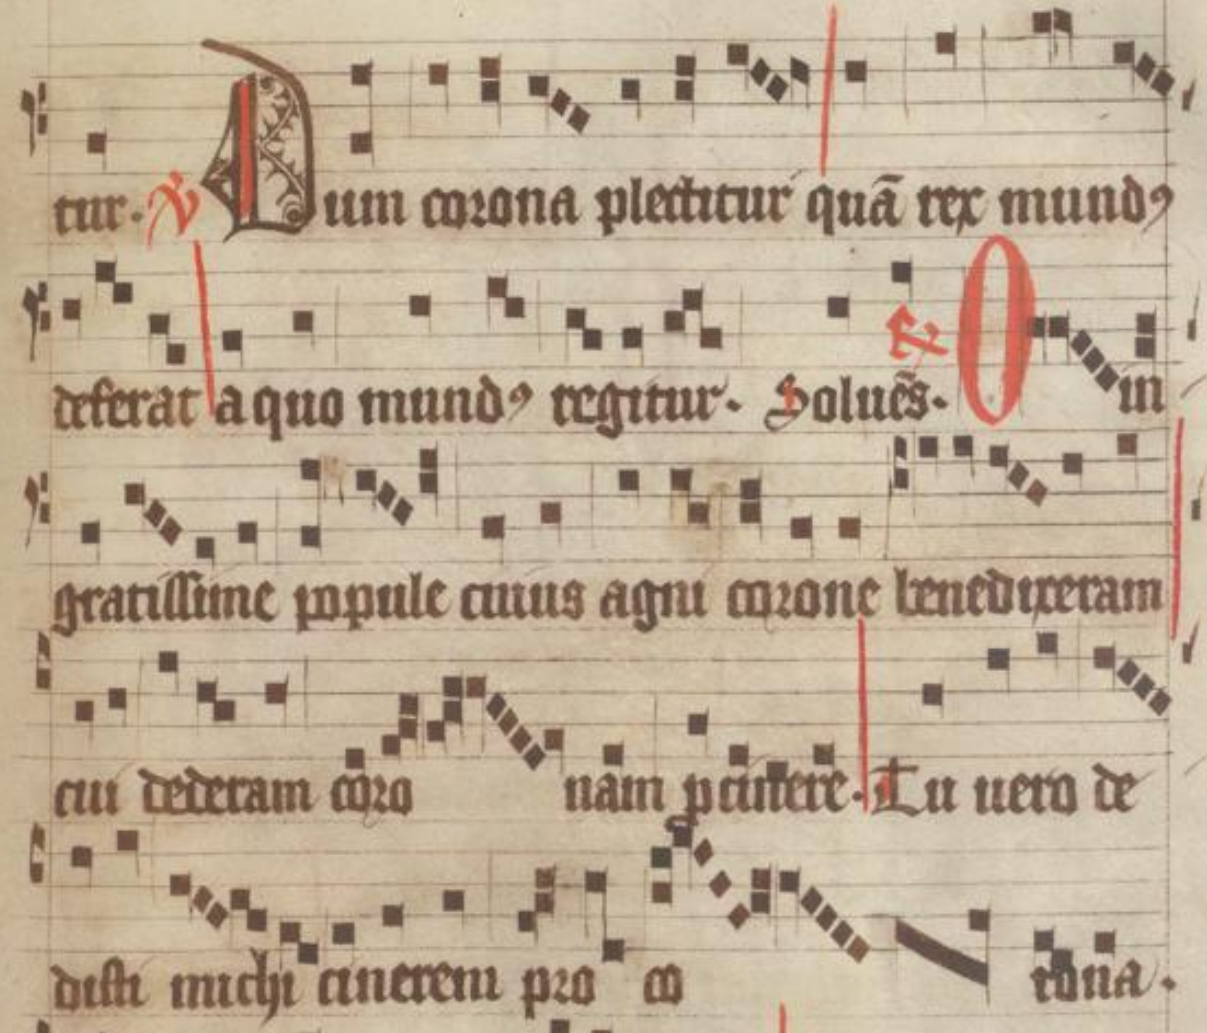 tur. ℣ Dum corona plectitur quā rex mundꝯ
deferat a quo mundꝯ regitur. Soluēs. ℟ O in
gratissime popule cuius agni corone benedixeram
cui dederam coro nam ꝑcīnere. Tu uero de
disti michi cinerem pro co rona.